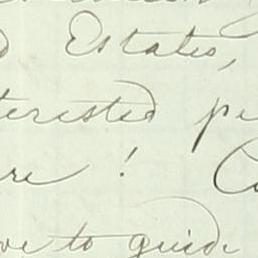 d Estates,
terested pe
re! C
ve to guide